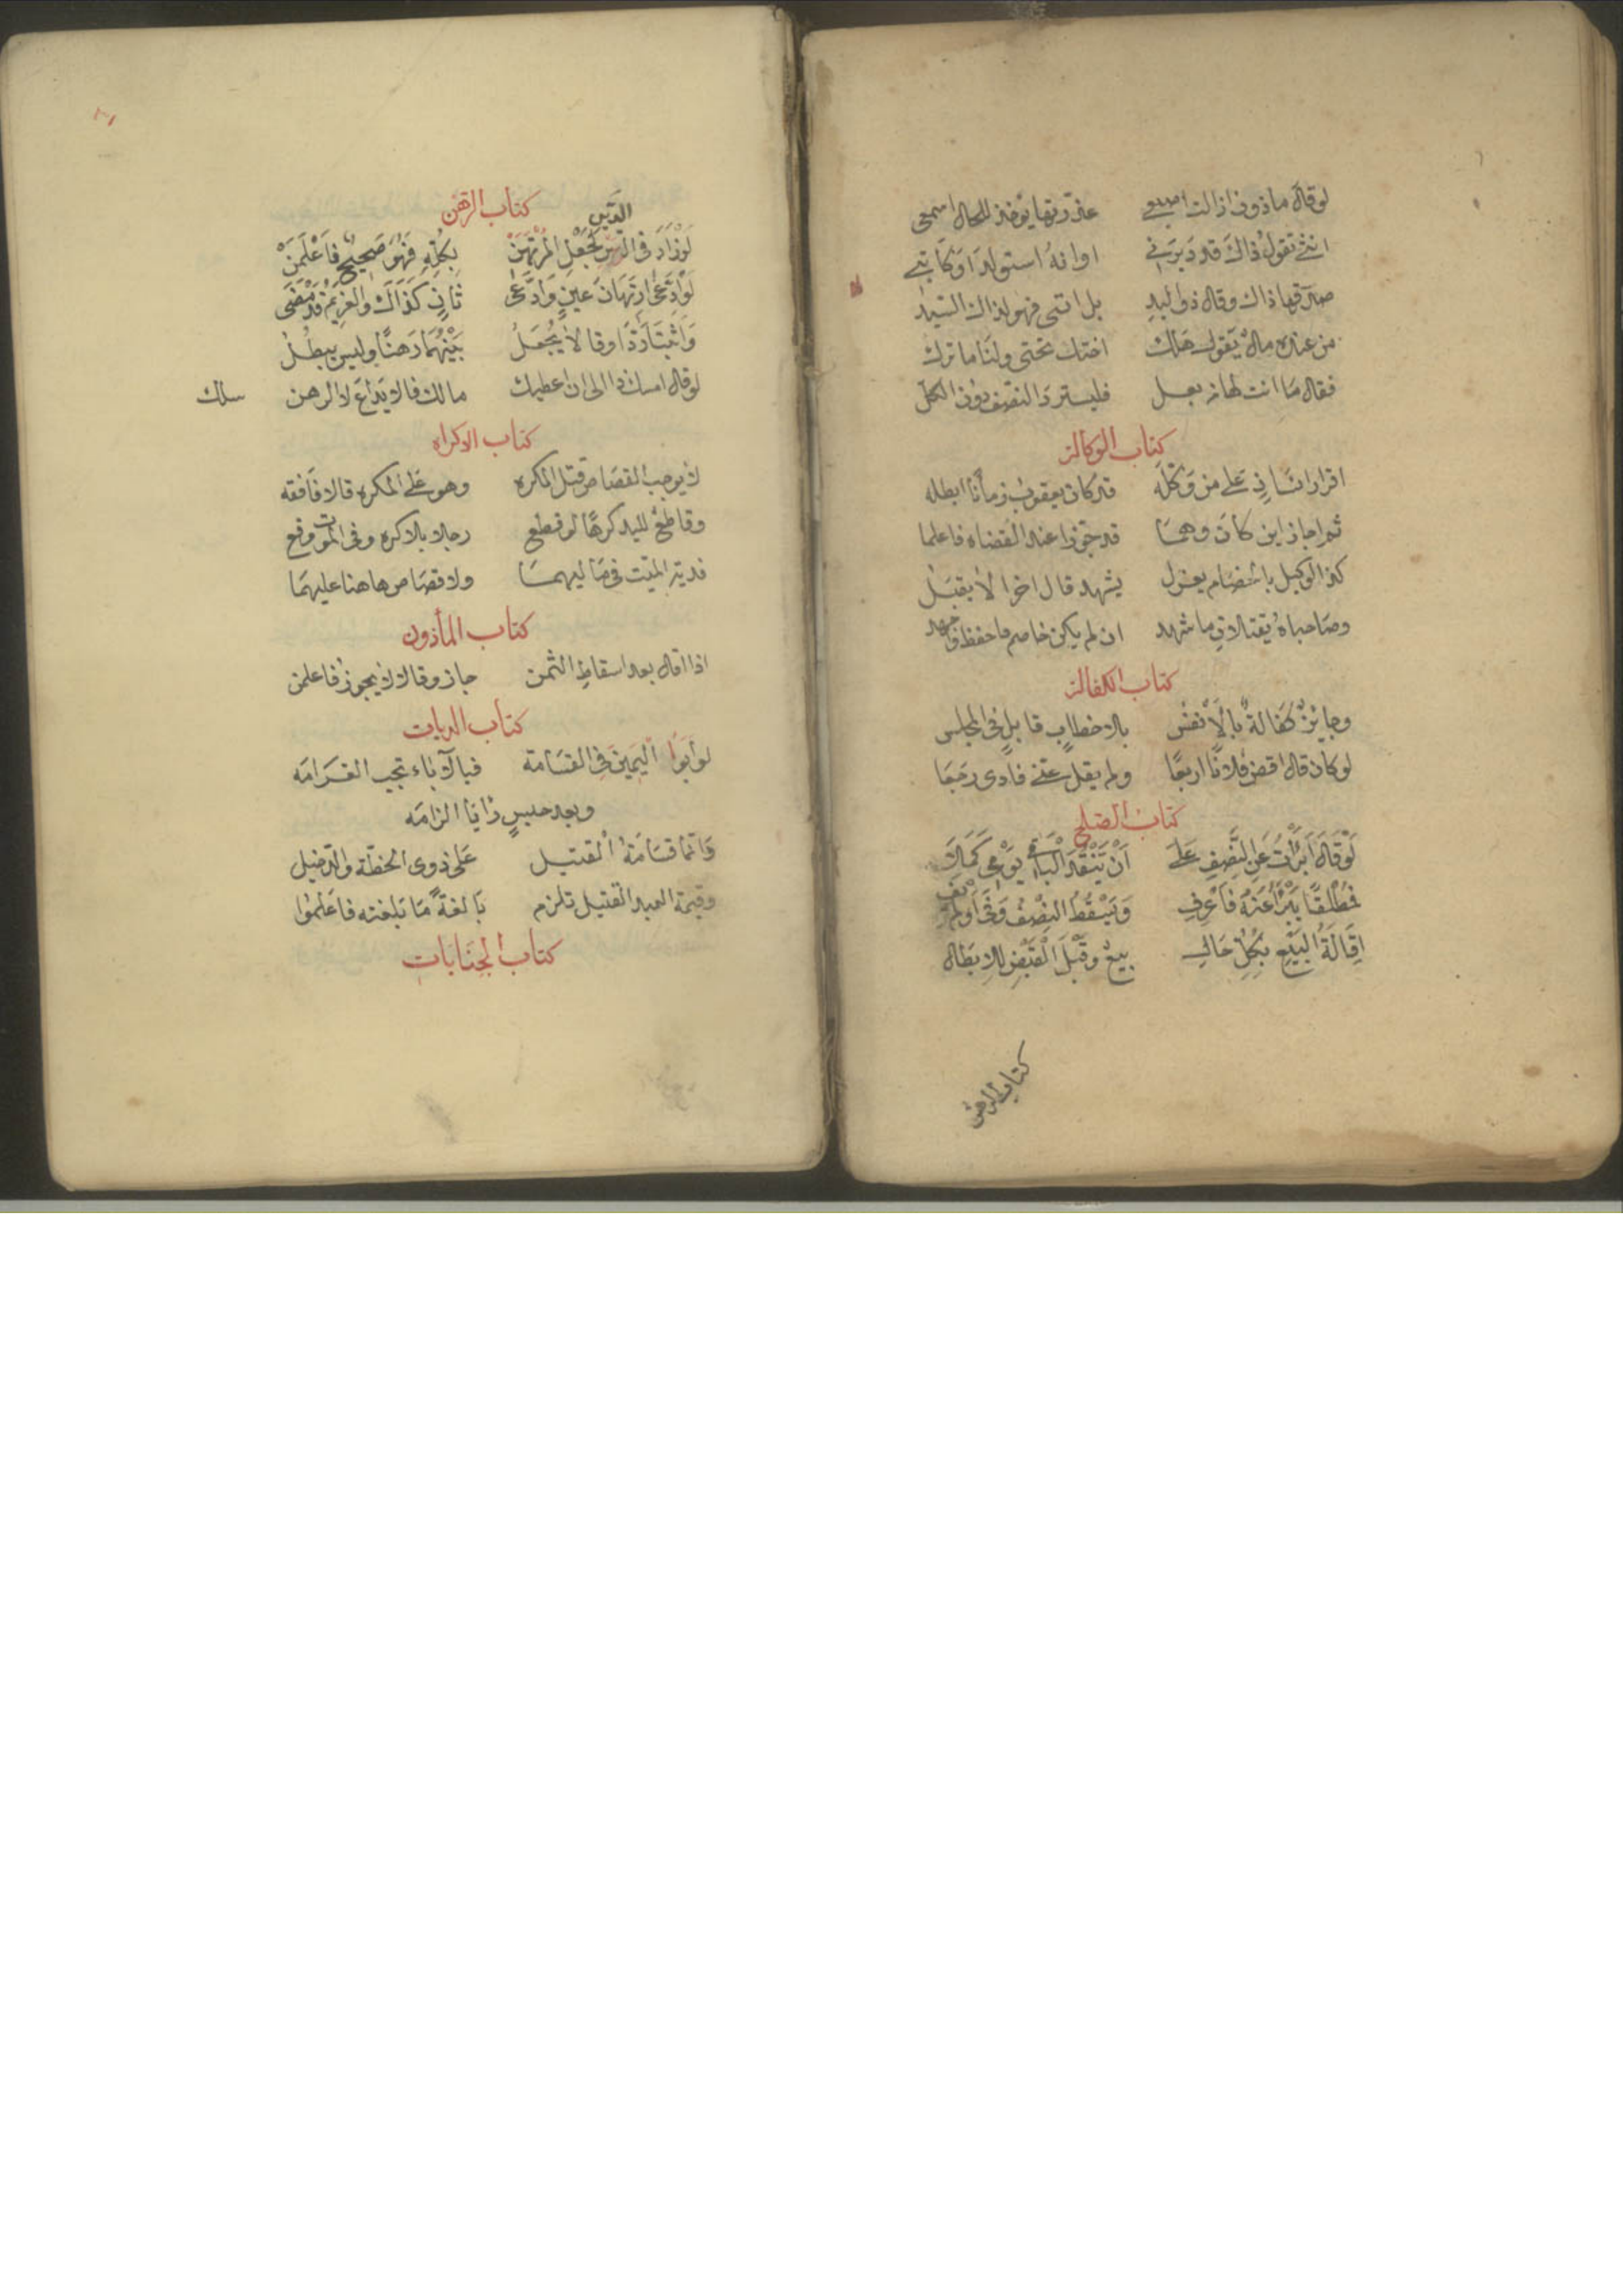 لو قال ماذوني ازالت اصبعي عن رقها يؤخذ للحال اسمعي
انثى تقول ذاك قد دبرني او انه استولدا وكاتبي
صدقها ذاك وقال ذو اليد بل انتى فهو لذاك السيد
من عنده مال يقول هلك اختك تحتى ولنا ما ترك
فقال ما انت لها ببعل فليسترد النصف دون الكل
كتاب الوكالة
اقرار انسان على من وكله قد كان يعقوب زمانا ابطله
ثم اجاز اين كان وهما قد جوزا عند القضاه فاعلما
كذا الوكيل باختصام يعزل يشهد قال اخرا لا يقبل
وصاحباه يقبلان ما شهد ان لم يكن خاصم فاحفظ واجهد
كتاب الكفالة
وجايز كفالة بالانفس بلا خطاب قابل في المجلس
لو كان قال اقض فلانا اربعا ولم يقل عني فادى رجعا
كتاب الصلح
لَوْ قَالَ اَبْرَأْتُ عَنِ النِّصْفِ عَلَى اَنْ يَنْقُدَ الْبَاقِي يَوْمِي كَمَلا
فَمُطْلَقًا يَبْرَأُ عَنْهُ فَاعْرِفِ وَيَسْقُطُ النِّصْفُ وَفَى اَوْ لَمْ يَفِ
اِقَالَةُ الْبَيْعِ بِكُلِّ حَالِ بيع وَقَبْلَ الْقَبْضِ لِلاِبْطَالِ
كتاب الرهن
كتاب الرهن
الدين
لَوْ زَادَ في الدين لجعل المرتهن بكله فهو صحيح فاعلمن
لو ادعى ارتهان عين وادعى ثان كذاك والغريم قد مضى
واثبتا ردا وقالا يجعل بينهما رهنا وليس يبطل
لو قال امسك ذا الى ان اعطيك مالك فالايداع لا الرهن سلك
كتاب الاكراه
لا يوجب القصاص قتل المكره وهو على المكره قالا فافقه
وقاطع لليد كرها لو قطع رجلا بلا كره وفي الموت وقع
فدية الميت في ماليهما ولا قصاص هاهنا عليهما
كتاب المأذون
اذا اقال بعد اسقاط الثمن جاز وقالا لا يجوز فاعلمن
كتاب الديات
لو ابوا اليمين في القسامة فبالاباء تجب الغرامه
وبعد حبس رايا الزامه
وانما قسامة القتيل على ذوي الخطة والدخيل
وقيمة العبد القتيل تلزم بالغة ما بلغته فاعلموا
كتاب الجنايات